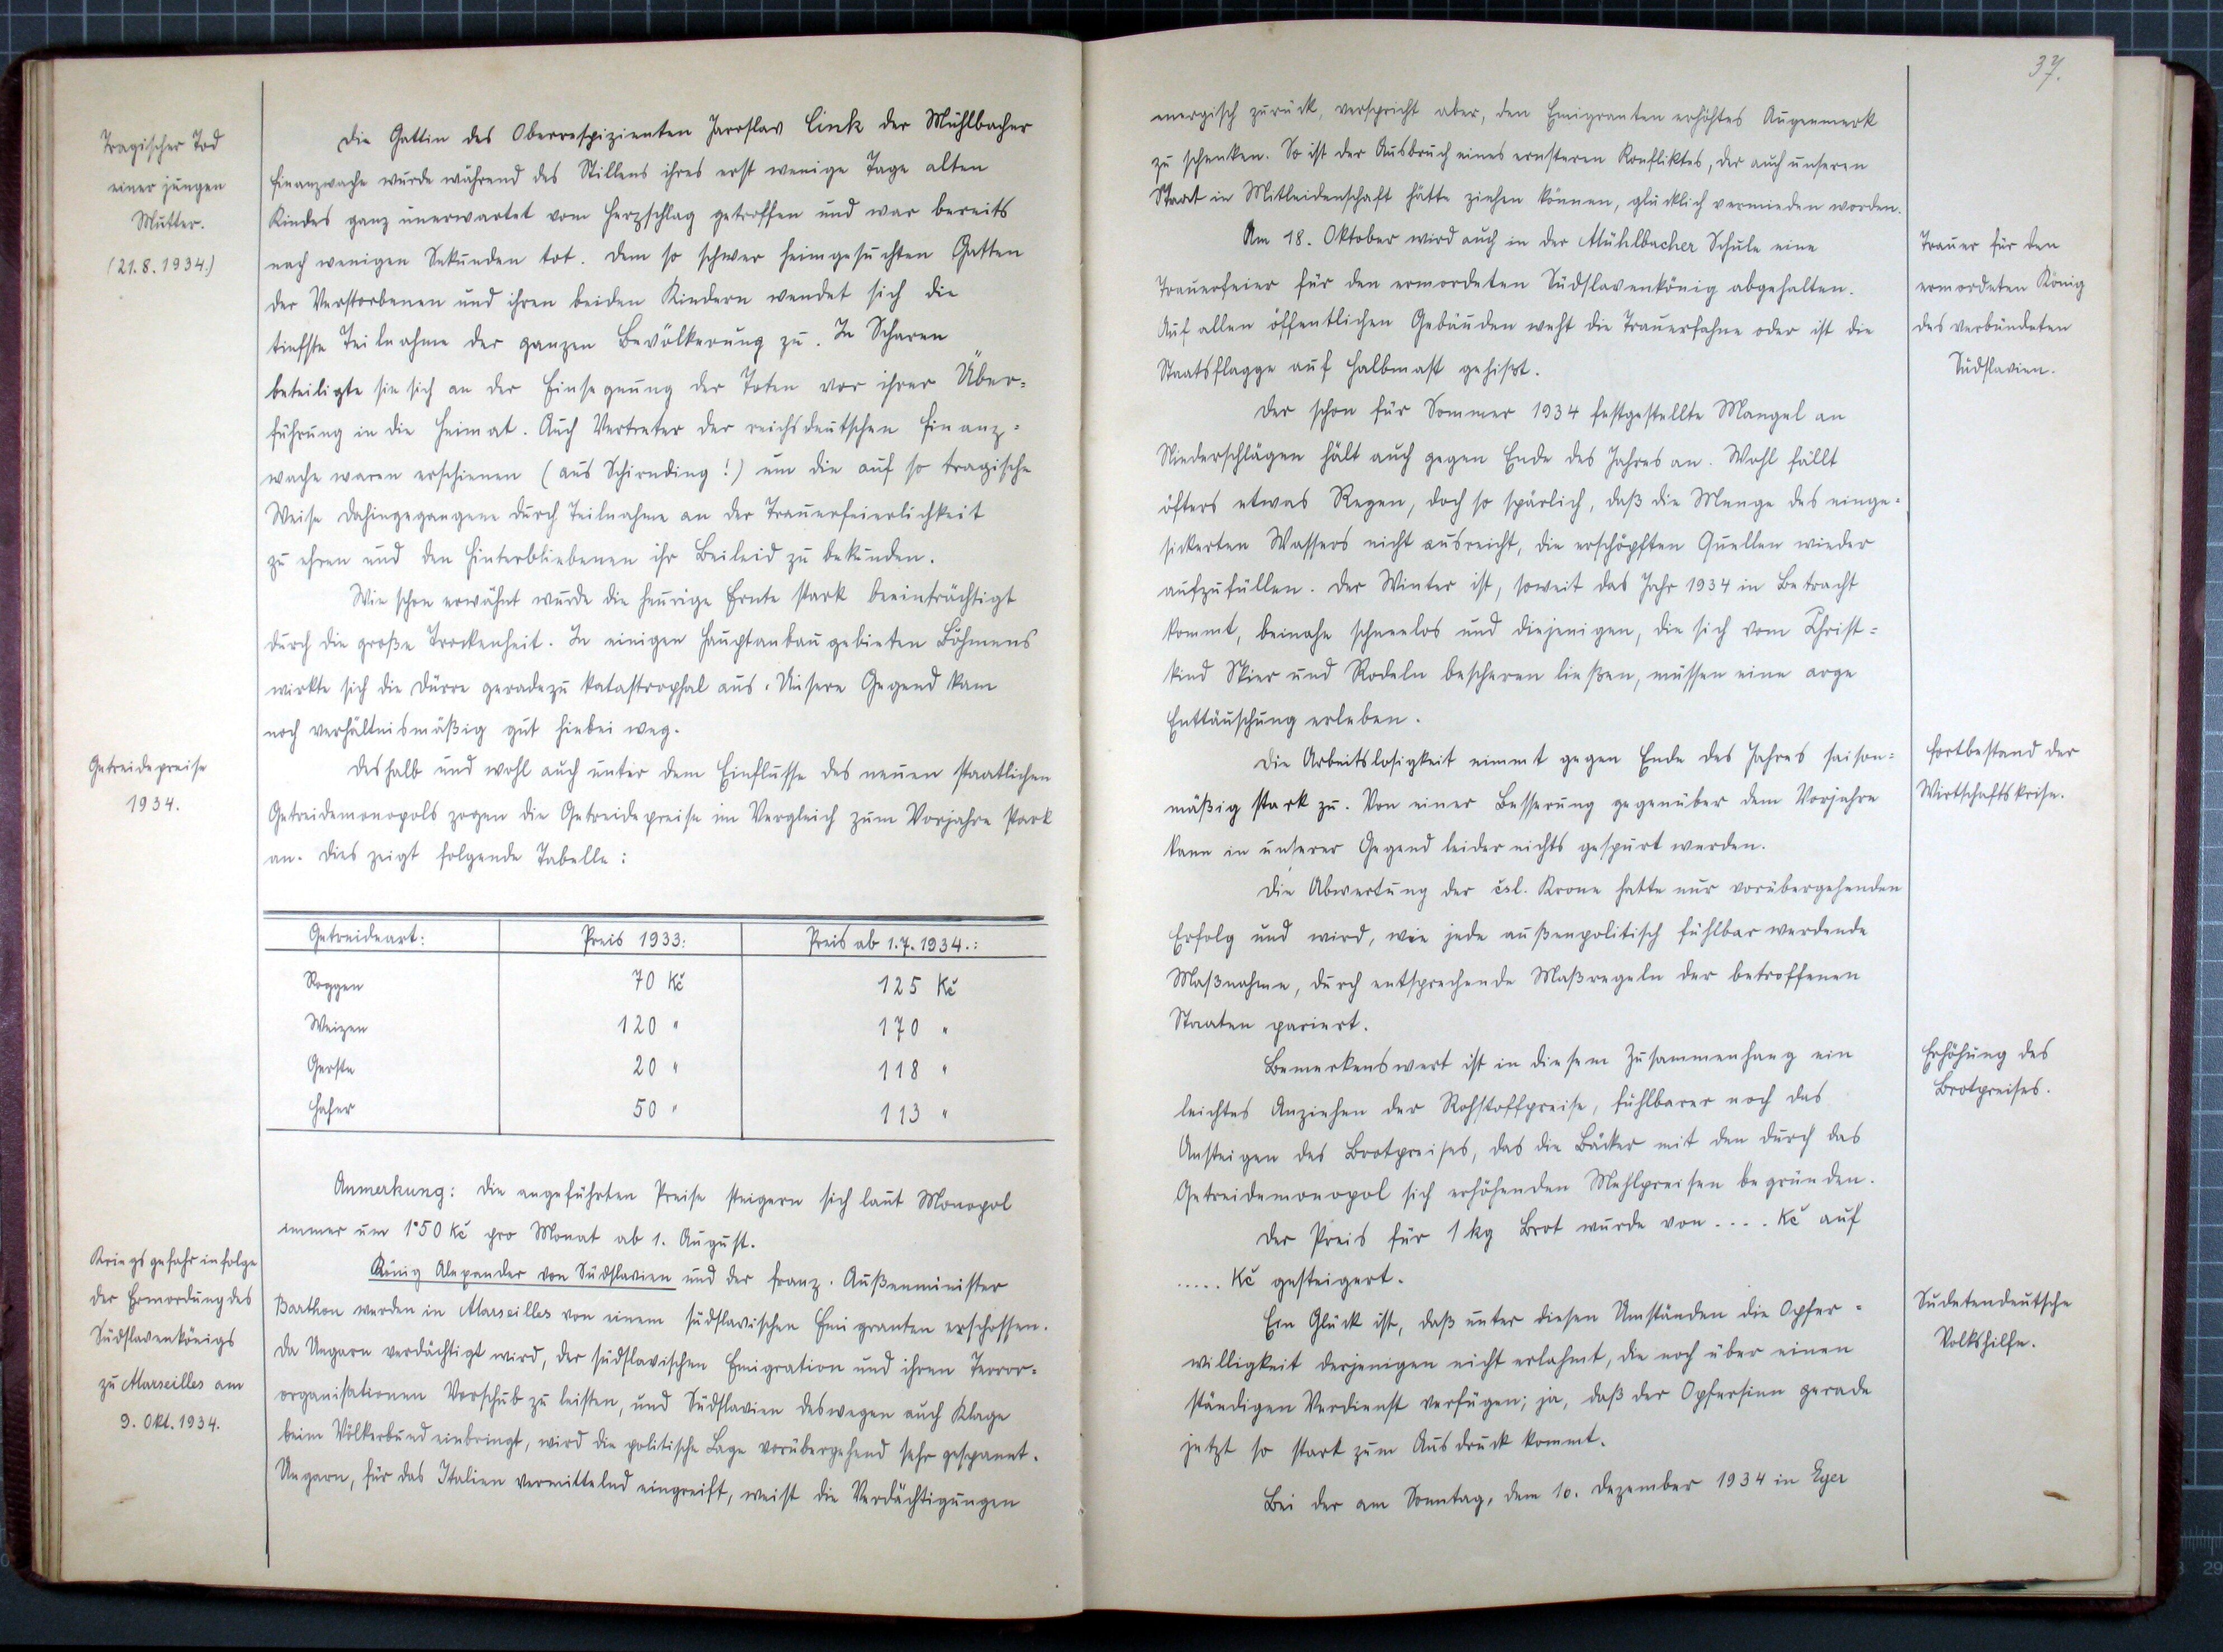 Tragischer Tod
einer jungen
Mutter.
(21.8.1934.)
Die Gattin des Oberrespizienten Jaroslav Cink der Mühlbacher
Finanzwache wurde während des Stillens ihres erst wenige Tage alten
Kindes ganz unerwartet vom Herzschlag getroffen und war bereits
nach wenigen Sekunden tot. Dem so schwer heimgesuchten Gatten
der Verstorbenen und ihren beiden Kindern wendet sich die
tiefste Teilnahme der ganzen Bevölkerung zu. In Scharen
beteiligte sie sich an der Einsegnung der Toten vor ihrer Über=
führung in die Heimat. Auch Vertreter der reichsdeutschen Finanz=
wache waren erschienen (aus Schirnding!) um die auf so tragische
Weise Dahingegangene durch Teilnahme an der Trauerfeierlichkeit
zu ehren und den Hinterbliebenen ihr Beileid zu bekunden.
Wie schon erwähnt wurde die heurige Ernte stark beeinträchtigt
durch die große Trockenheit. In einigen Hauptanbaugebieten Böhmens
wirkte sich die Dürre geradezu katastrophal aus. Unsere Gegend kam
noch verhältnismäßig gut hiebei weg.
Getreidepreise
1934.
Deshalb und wohl auch unter dem Einflusse des neuen staatlichen
Getreidemonopols zogen die Getreidepreise im Vergleich zum Vorjahre stark
an. Dies zeigt folgende Tabelle:
Getreideart: Preis 1933: Preis ab 1.7.1934.:
Roggen 70 Kč 125 Kč
Weizen 120 " 170 "
Gerste 20 " 118 "
Hafer 50 " 113 "
Anmerkung: Die angeführten Preise steigern sich laut Monopol
immer um 1·50 Kč pro Monat ab 1. August.
Kriegsgefahr infolge
der Ermordung des
Südslavenkönigs
zu Marseilles am
9. Okt. 1934.
König Alexander von Südslavien und der franz. Außenminister
Barthou werden in Marseilles von einem südslavischen Emigranten erschossen.
Da Ungarn verdächtigt wird, der südslavischen Emigration und ihren Terror=
organisationen Vorschub zu leisten, und Südslavien deswegen auch Klage
beim Völkerbund einbringt, wird die politische Lage vorübergehend sehr gespannt.
Ungarn, für das Italien vermittelnd eingreift, weist die Verdächtigungen
37.
energisch zurück, verspricht aber, den Emigranten erhöhtes Augenmerk
zu schenken. So ist der Ausbruch eines ernsteren Konfliktes, der auch unseren
Staat in Mitleidenschaft hätte ziehen können, glücklich vermieden worden.
Am 18. Oktober wird auch in der Mühlbacher Schule eine
Trauerfeier für den ermordeten Südslavenkönig abgehalten.
Auf allen öffentlichen Gebäuden weht die Trauerfahne oder ist die
Staatsflagge auf Halbmast gehißt.
Trauer für den
ermordeten König
des verbündeten
Südslavien.
Der schon für Sommer 1934 festgestellte Mangel an
Niederschlägen hält auch gegen Ende des Jahres an. Wohl fällt
öfters etwas Regen, doch so spärlich, daß die Menge des einge=
sickerten Wassers nicht ausreicht, die erschöpften Quellen wieder
aufzufüllen. Der Winter ist, soweit das Jahr 1934 in Betracht
kommt, beinahe schneelos und diejenigen, die sich vom Christ=
kind Skier und Rodeln bescheren ließen, müssen eine arge
Enttäuschung erleben.
Die Arbeitslosigkeit nimmt gegen Ende des Jahres saison=
mäßig stark zu. Von einer Besserung gegenüber dem Vorjahre
kann in unserer Gegend leider nichts gespürt werden.
Fortbestand der
Wirtschaftskrise.
Die Abwertung der čsl. Krone hatte nur vorübergehenden
Erfolg und wird, wie jede außenpolitisch fühlbar werdende
Maßnahme, durch entsprechende Maßregeln der betroffenen
Staaten pariert.
Bemerkenswert ist in diesem Zusammenhang ein
leichtes Anziehen der Rohstoffpreise, fühlbarer noch das
Ansteigen des Brotpreises, das die Bäcker mit den durch das
Getreidemonopol sich erhöhenden Mehlpreisen begründen.
Erhöhung des
Brotpreises.
Der Preis für 1 kg Brot wurde von .... Kč auf
..... Kč gesteigert.
Ein Glück ist, daß unter diesen Umständen die Opfer=
willigkeit derjenigen nicht erlahmt, die noch über einen
ständigen Verdienst verfügen; ja, daß der Opfersinn gerade
jetzt so stark zum Ausdruck kommt.
Sudetendeutsche
Volkshilfe.
Bei der am Sonntag, dem 10. Dezember 1934 in Eger